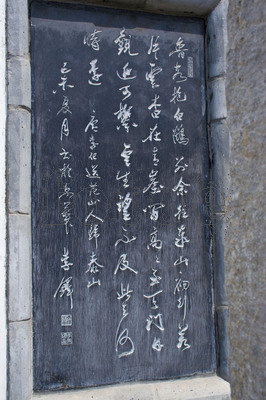 魯客抱白鶴别余往泰山初行若
片雲杳在青崖間高高至天門日
觀近可攀雲生望不及此去何
時還 唐李白送范山人歸泰山
己未夏月書於 李鐸